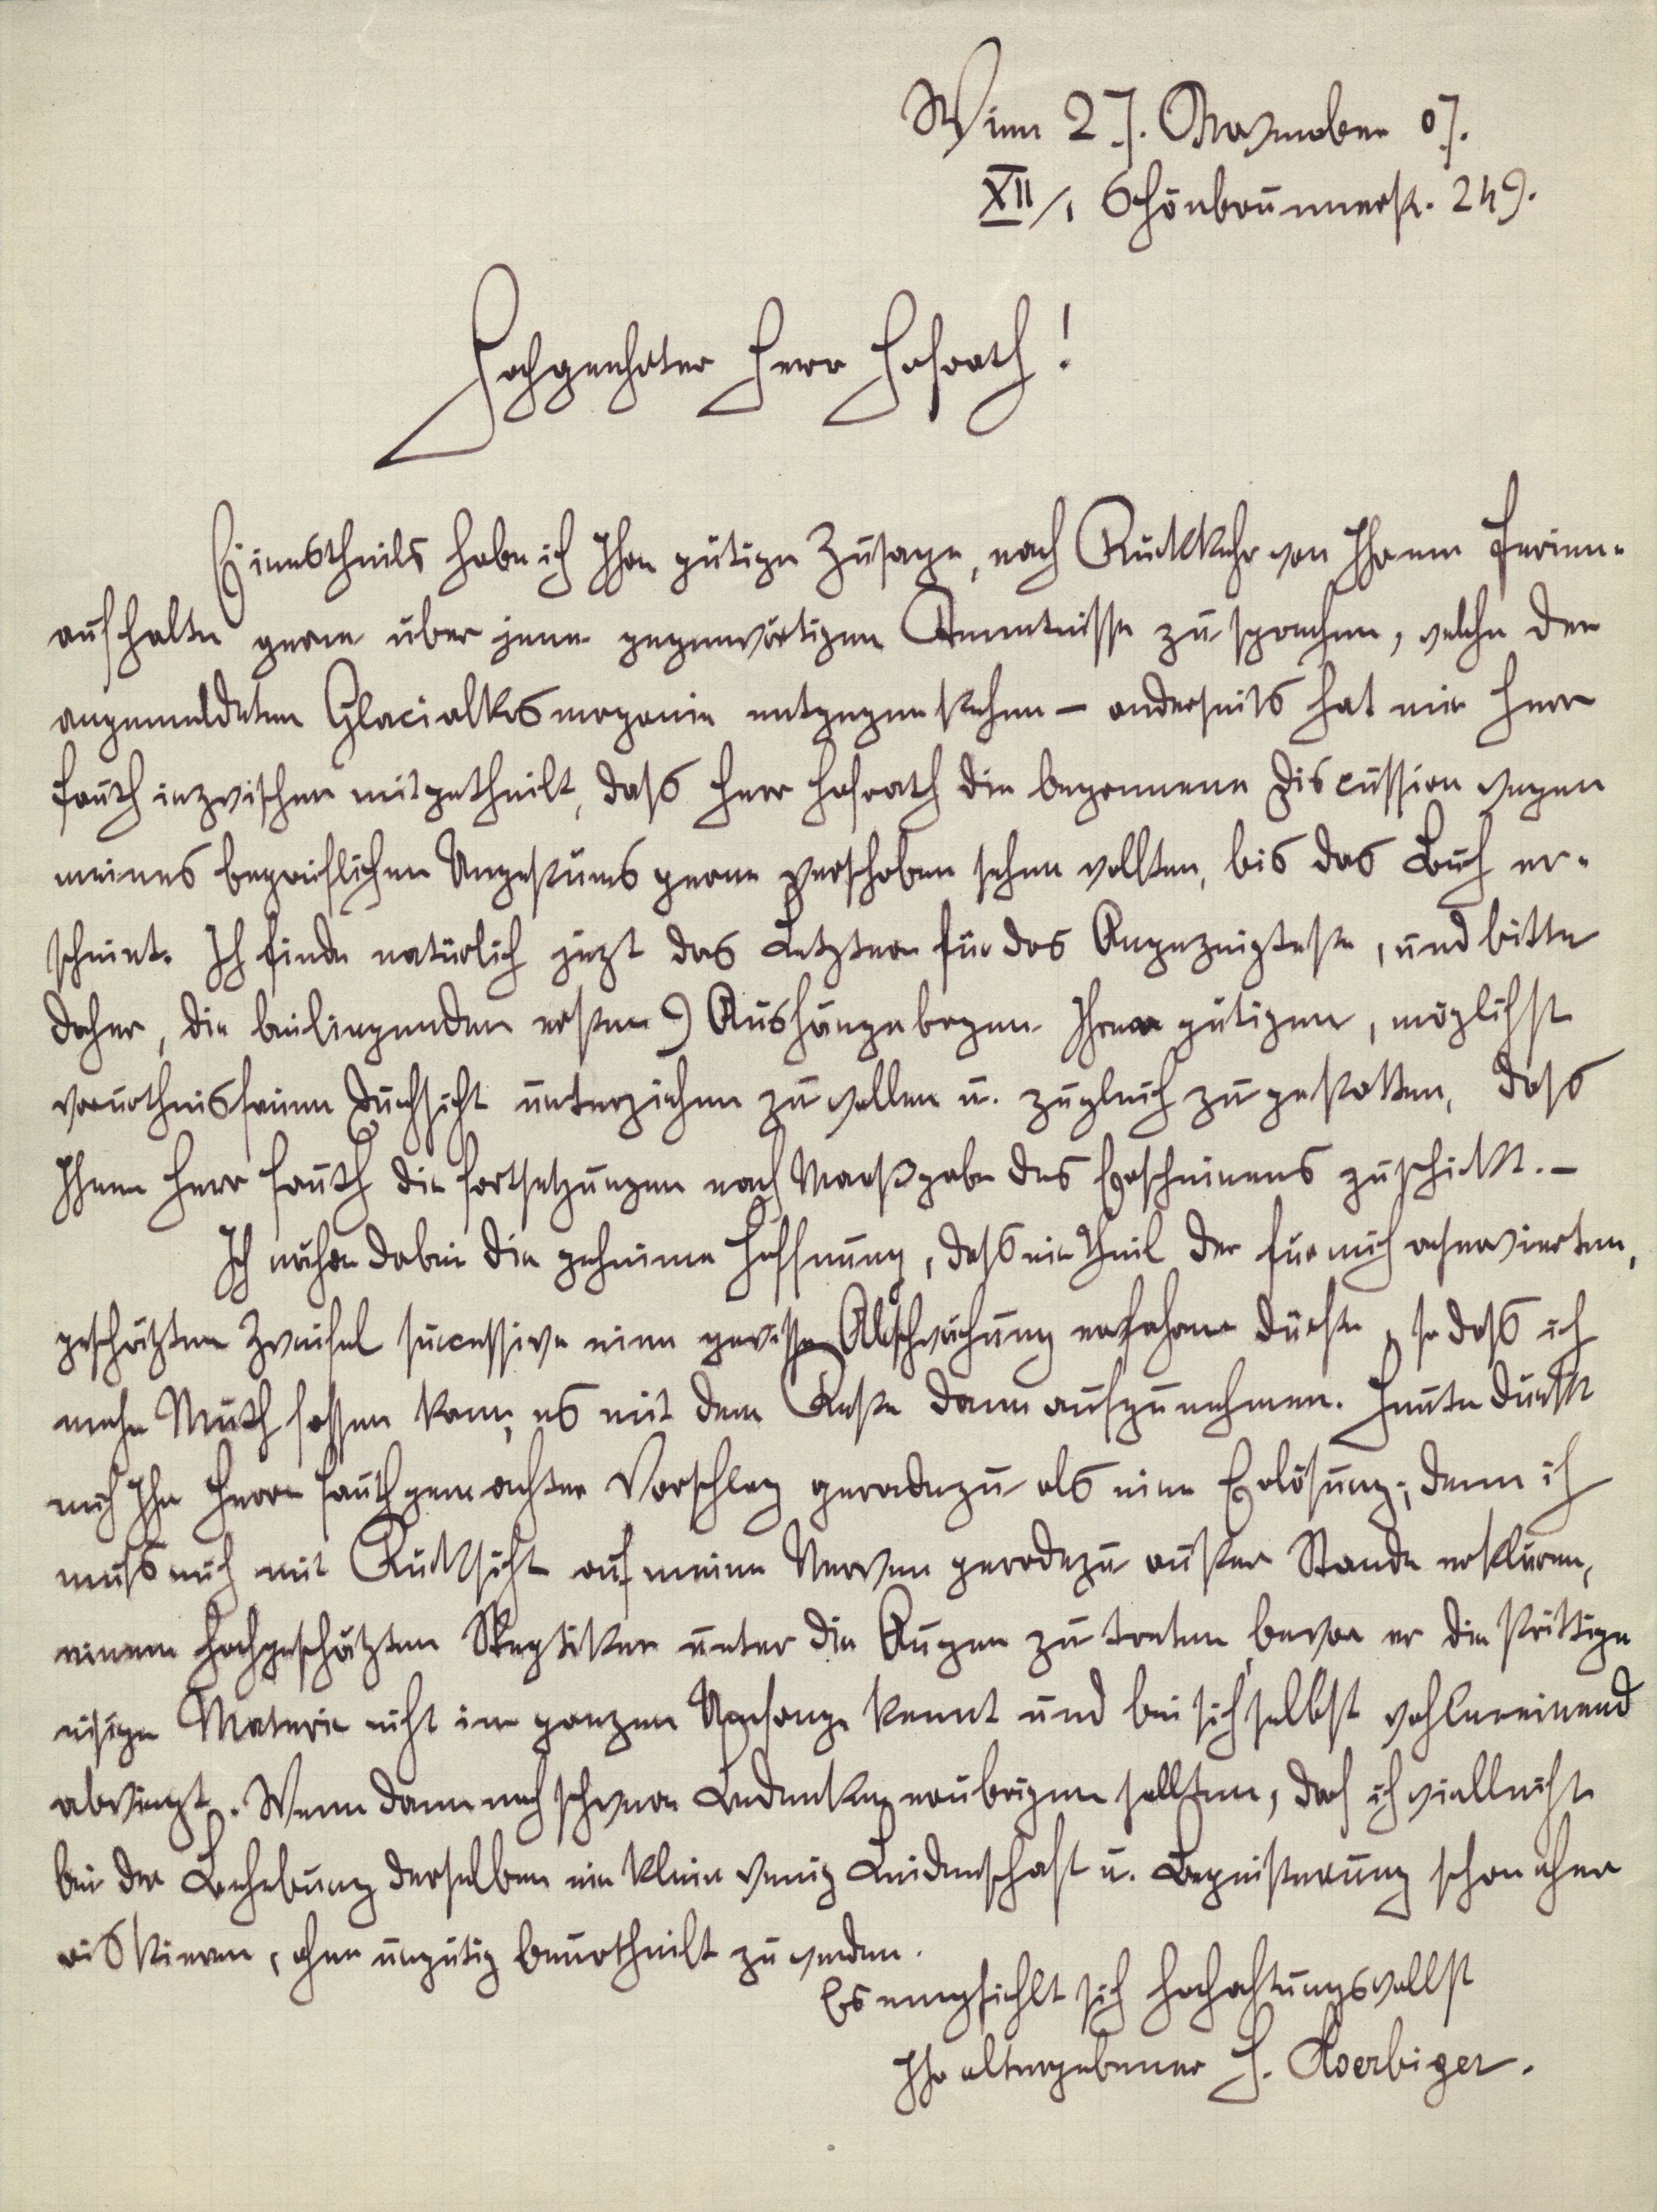 Wien 27. November 07.
XII/1 Schönbrunnerstr. 249.
Hochgeehrter Herr Hofrath!
Einestheils habe ich Ihre gütige Zusage, nach Rückkehr von Ihrem Ferien-
aufhalte gerne über jene gegenwärtigen Kenntnisse zu sprechen, welche der
angemeldeten Glacialkosmogonie entgegenstehen – anderseits hat mir Herr
Fauth inzwischen mitgetheilt, dass Herr Hofrath die begonnene Discussion wegen
meines begreiflichen Ungestüms gerne verschoben sehen wollten, bis das Buch er-
scheint. Ich finde natürlich jezt das Letztere für das Angezeigteste, und bitte
daher, die beiliegenden ersten 9 Aushängebogen Ihrer gütigen, möglichst
vorurtheilsfreien Durchsicht unterziehen zu wollen u. zugleich zu gestatten, dass
Ihnen Herr Fauth die Fortsetzungen nach Maaßgabe des Erscheinens zuschickt. –
Ich nähre dabei die geheime Hoffnung, dass ein Theil der für mich reservierten,
geschätzten Zweifel successive eine gewisse Abschwächung erfahren dürfte, so dass ich
mehr Muth fassen kann, es mit dem Reste dann aufzunehmen. Heute dünkt
mich Ihr Herrn Fauth gemachter Vorschlag geradezu als eine Erlösung; denn ich
muss mich mit Rücksicht auf meine Nerven geradezu außer Stande erklären,
einem hochgeschätzten Skeptiker unter die Augen zu treten, bevor er die strittige
eisige Materie nicht im ganzen Umfange kennt und bei sich selbst wohlmeinend
abwiegt. Wenn dann noch schwere Bedenken erübrigen sollten, darf ich vielleicht
bei der Behebung derselben ein klein wenig Leidenschaft u. Begeisterung schon eher
riskieren, ohne ungütig beurtheilt zu werden.
Es empfiehlt sich hochachtungsvollst
Ihr altergebener H. Hoerbiger.